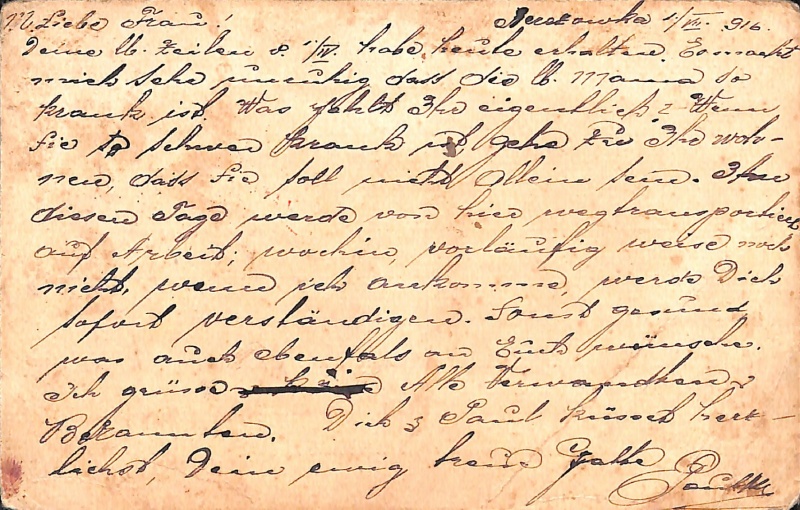 M. Liebe Frau! 1/VII. 916.
Deine lb. Zeilen v. 1/IV. habe heute erhalten. Es macht
mich sehr unruhig dass die lb. Mama so
krank ist. Was fehlt Ihr eigentlich? Wenn
sie so schwer krank ist gehe zu Ihr woh-
nen, dass sie soll nicht allein sein. In
diesen Tage werde von hier wegtransportiert
auf Arbeit; wochin, vorläufig weise noch
nicht, wenn ich ankomme, werde Dich
sofort verständigen. Sonst gesund
was auch ebenfals an Euch wünsche.
Ich grüsse Alle Verwandten &
Bekannten. Dich & Paul küsset herz-
lichst, Dein ewig treue Gatte